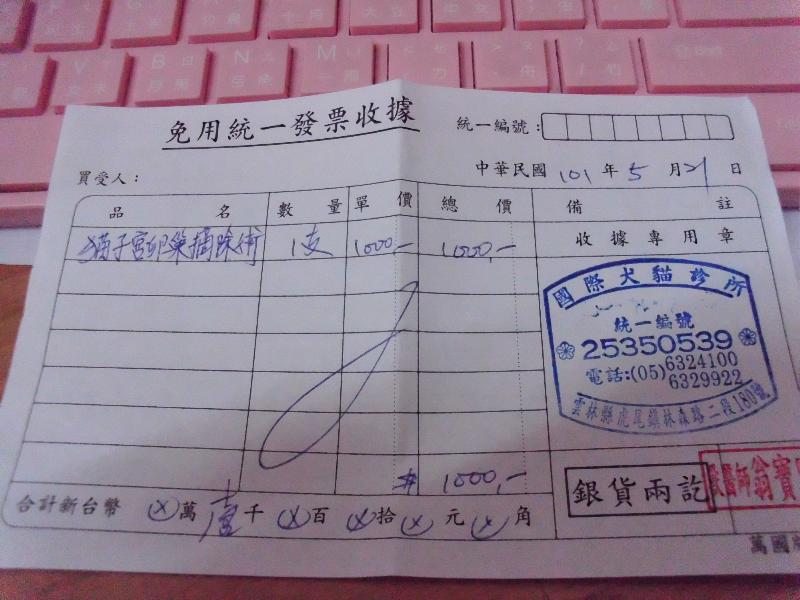 免用統一發票收據
統一編號：
買受人：
中華民國 101 年 5 月 21 日
品名 數量 單價 總價 備註
貓子宮卵巢摘除術 1支 1000,- 1000,-
收據專用章
國際犬貓診所
統一編號
25350539
電話:(05)6324100
6329922
雲林縣虎尾鎮林森路二段180號
# 1000,-
銀貨兩訖
獸醫師翁寶
合計新台幣 ⓧ 萬 壹 千 ⓧ 百 ⓧ 拾 ⓧ 元 ⓧ 角
萬國牌